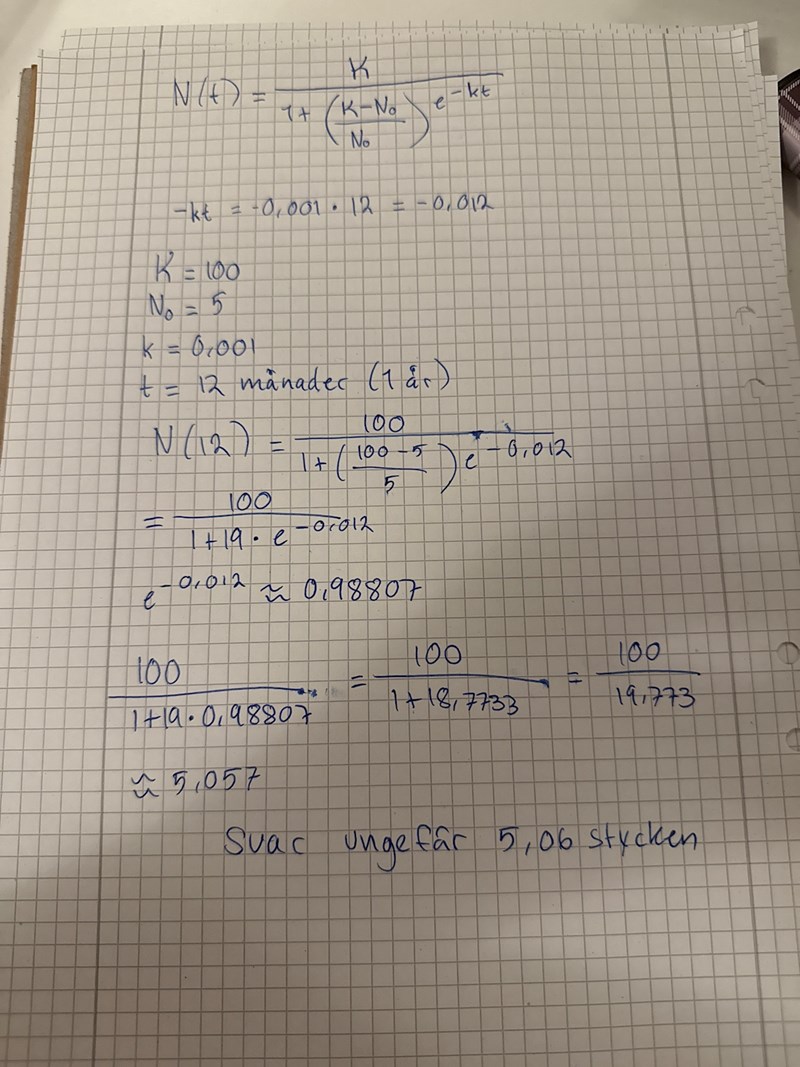 N(t) = K / (1+ ((K-N₀)/N₀) e^(-kt))
-kt = -0,001 · 12 = -0,012
K = 100
N₀ = 5
k = 0,001
t = 12 månader (1 år)
N(12) = 100 / (1+ ((100-5)/5) e^(-0,012))
= 100 / (1+19 · e^(-0,012))
e^(-0,012) ≈ 0,98807
100 / (1+19 · 0,98807) = 100 / (1+18,7733) = 100 / 19,773
≈ 5,057
Svar ungefär 5,06 stycken